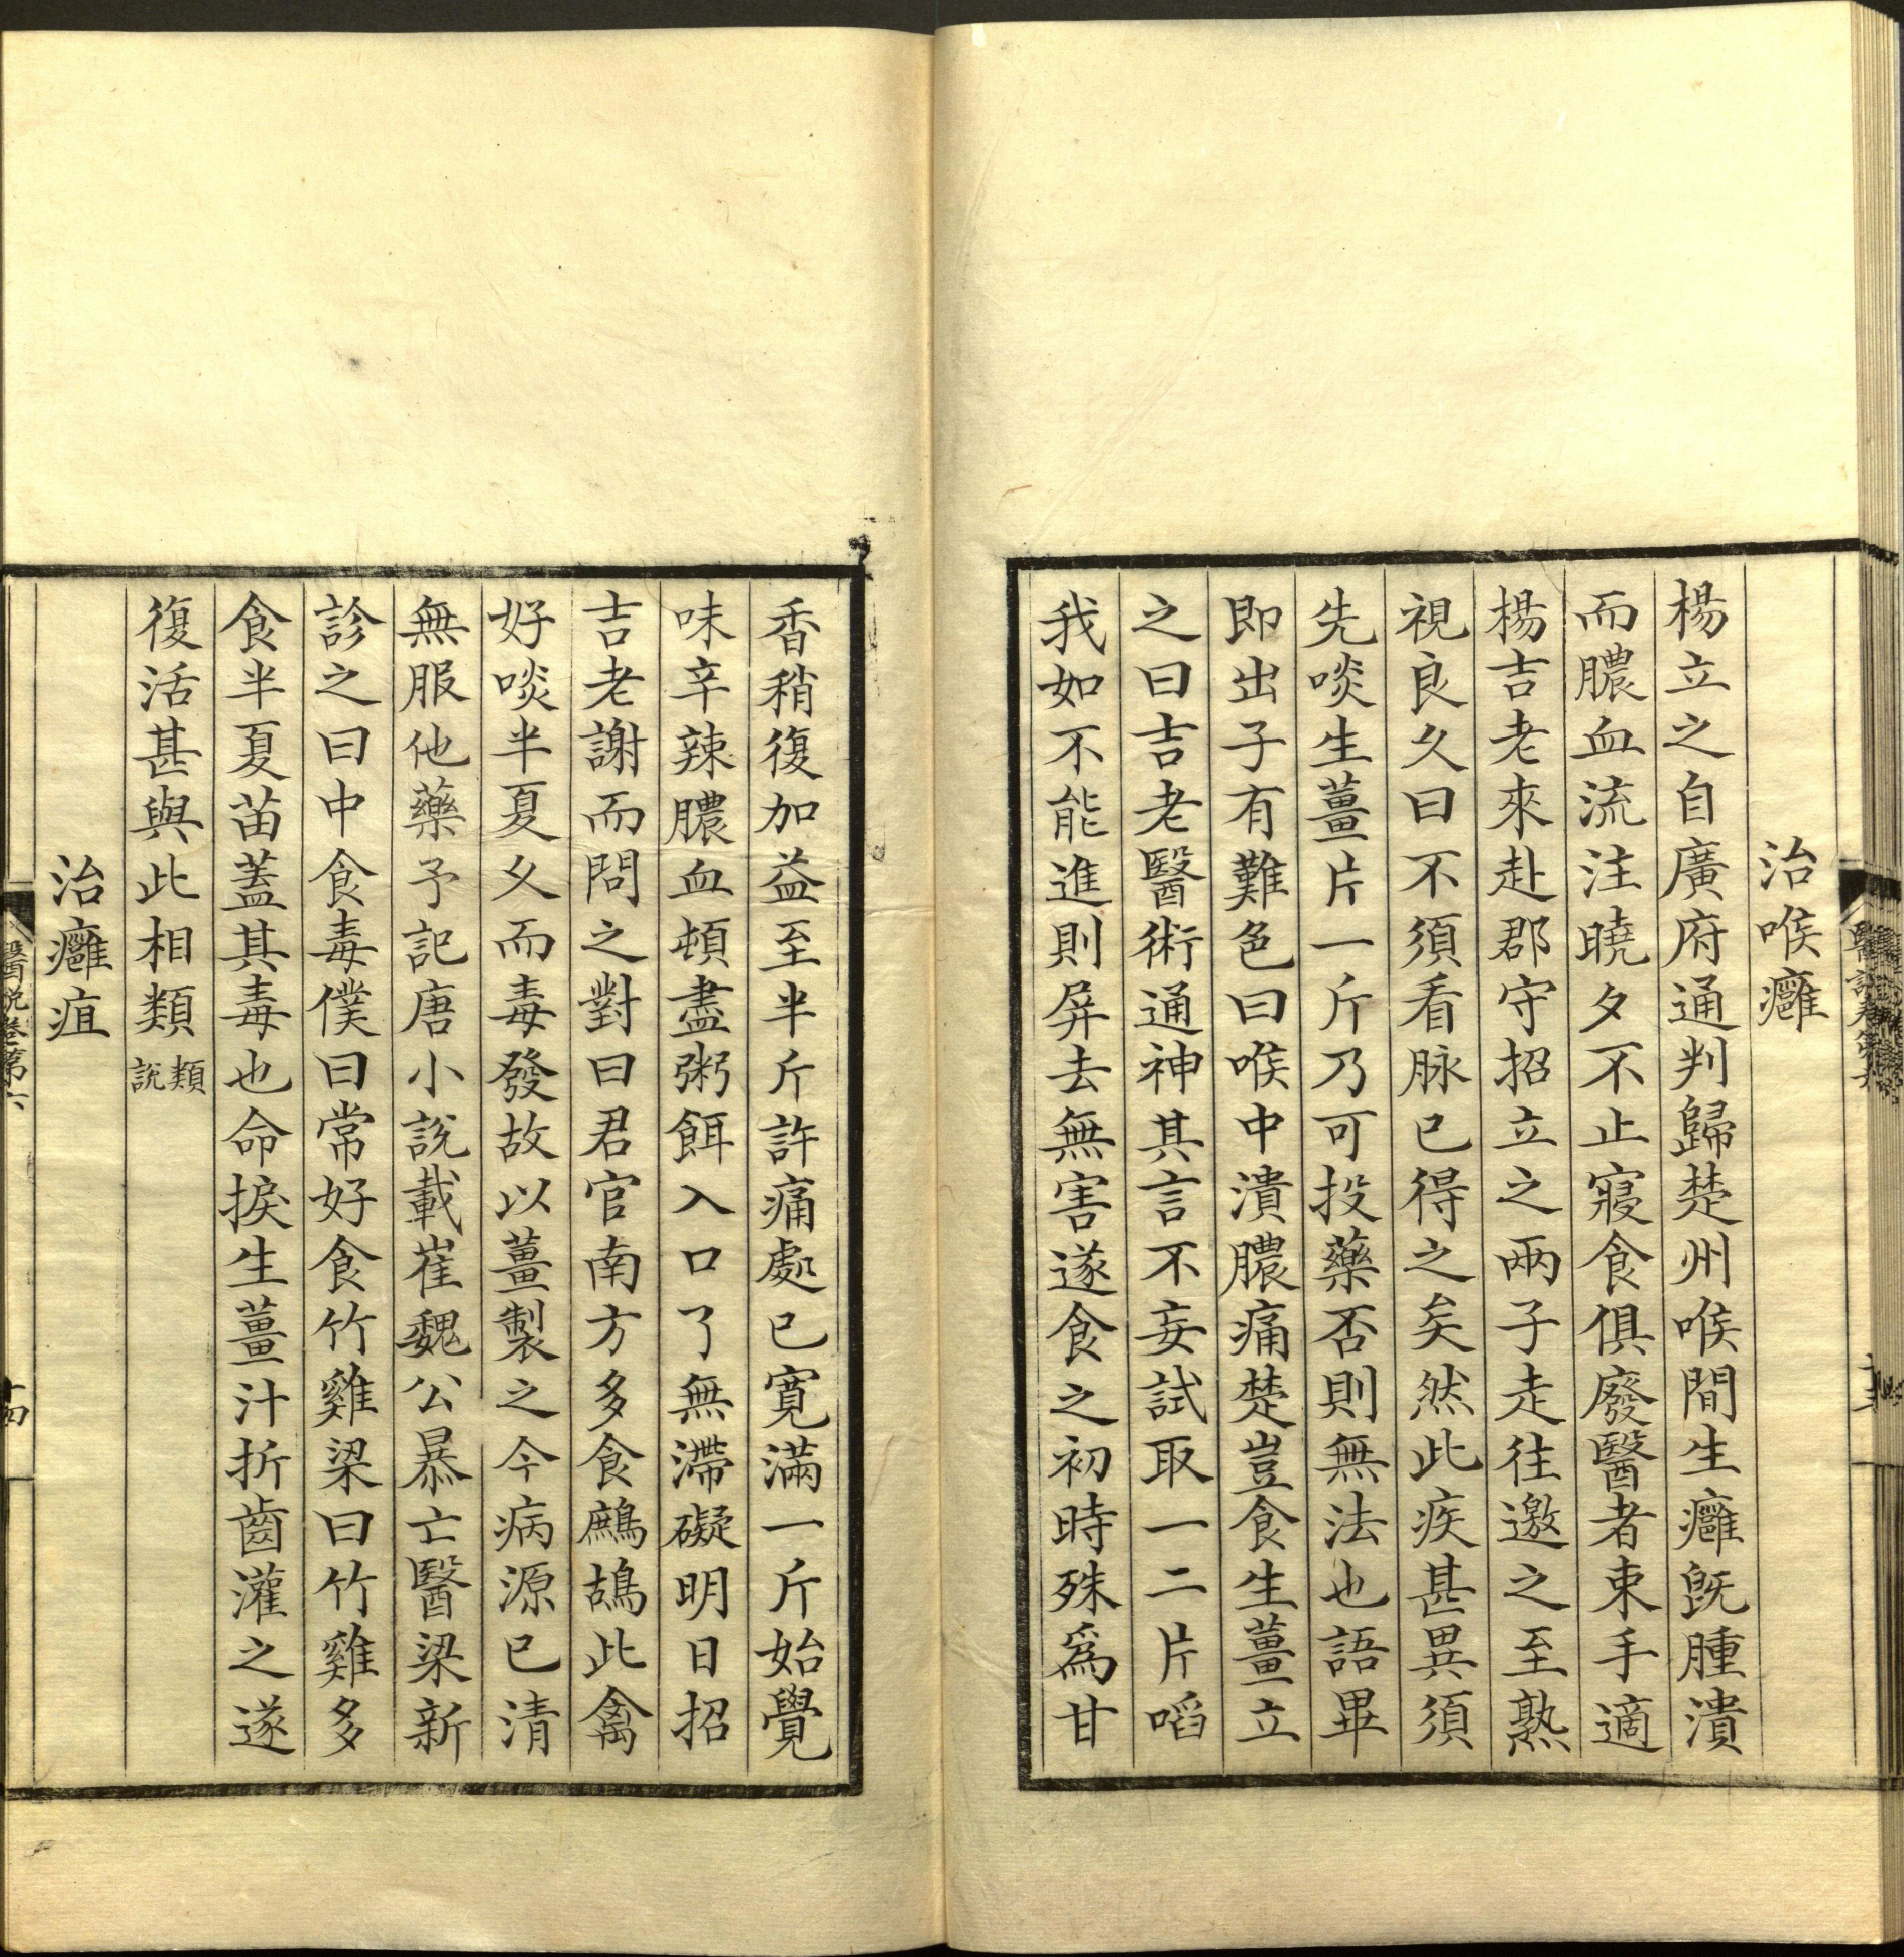 治喉癰
楊立之自廣府通判歸楚州喉間生癰旣腫潰
而膿血流注曉夕不止寢食俱廢醫者束手適
楊吉老來赴郡守招立之兩子走往邀之至熟
視良久曰不須看脉已得之矣然此疾甚異須
先啖生薑片一斤乃可投藥否則無法也語畢
即出子有難色曰喉中潰膿痛楚豈食生薑立
之曰吉老醫術通神其言不妄試取一二片㗖
我如不能進則屏去無害遂食之初時殊爲甘
香稍復加益至半斤許痛處已寬滿一斤始覺
味辛辣膿血頓盡粥餌入口了無滯礙明日招
吉老謝而問之對曰君官南方多食鷓鴣此禽
好啖半夏久而毒發故以薑製之今病源已清
無服他藥予記唐小說載崔魏公暴亡醫梁新
診之曰中食毒僕曰常好食竹雞梁曰竹雞多
食半夏苗蓋其毒也命捩生薑汁折齒灌之遂
復活甚與此相類類說
治癰疽
醫說卷第六
十四